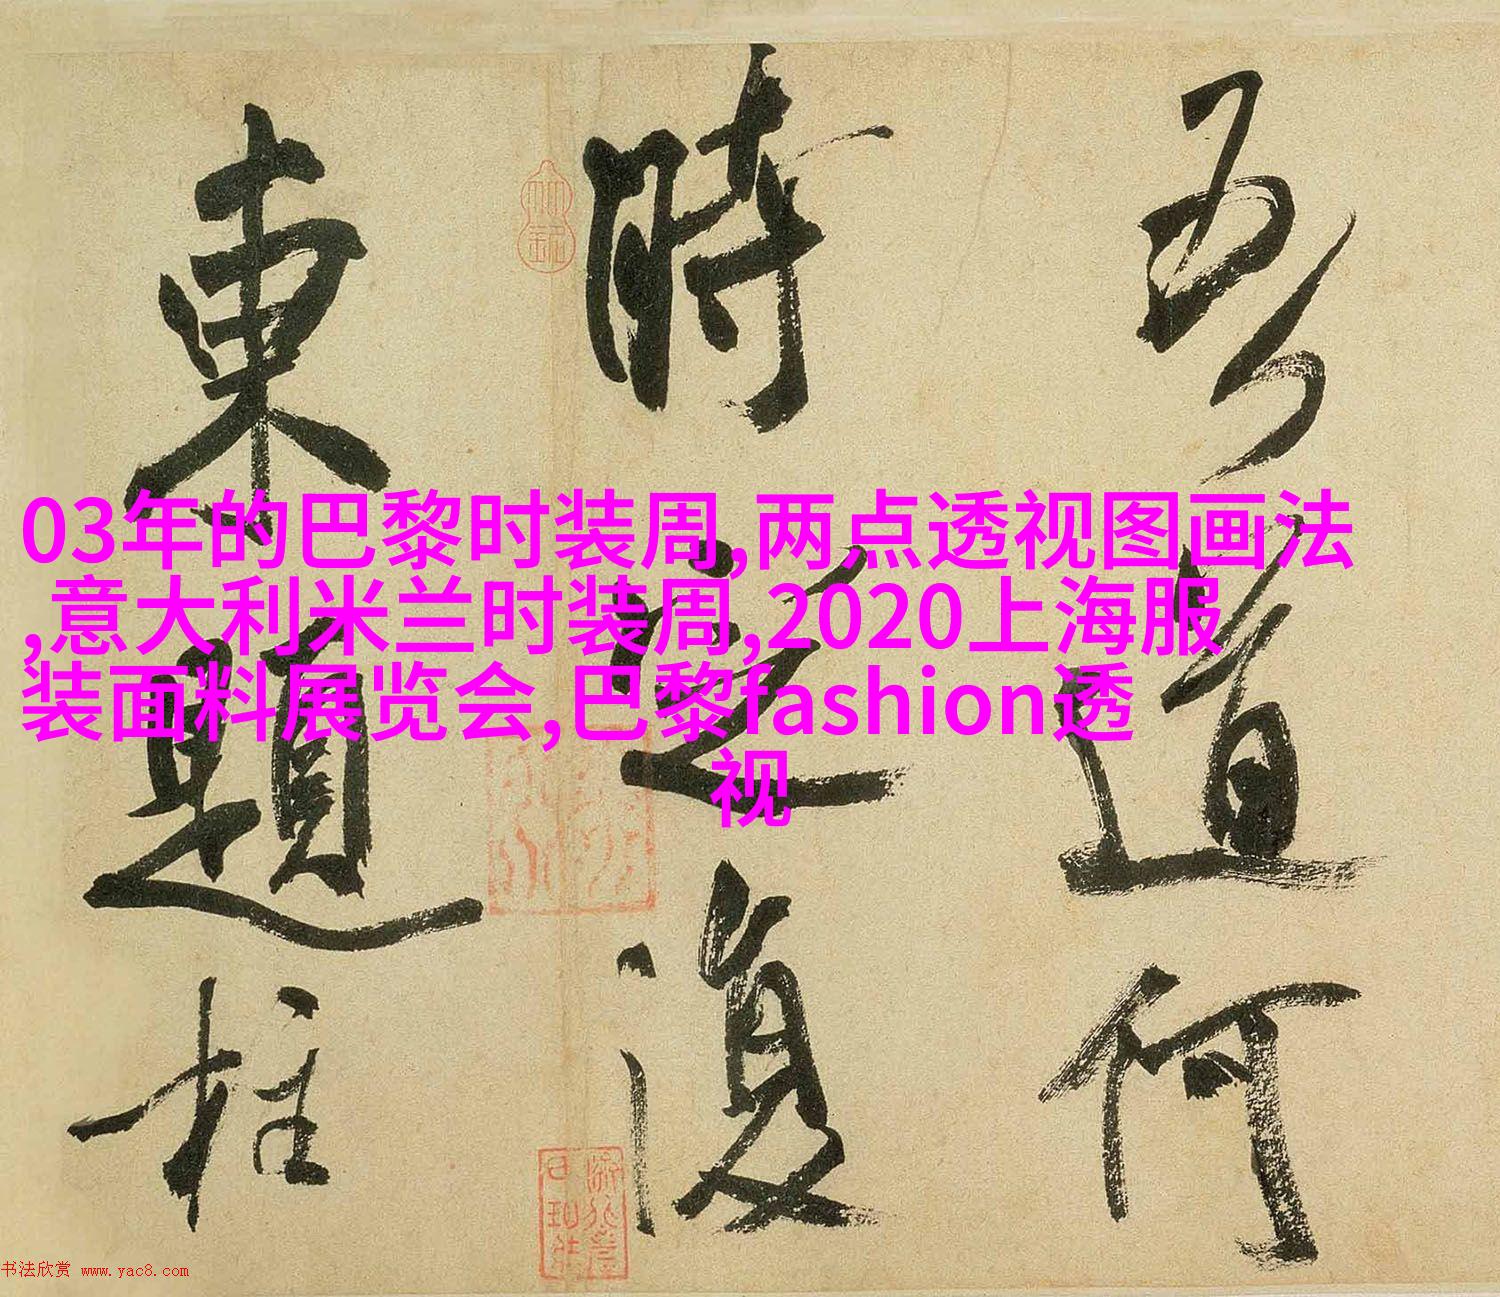 03年的巴黎时装周,两点透视图画法
,意大利米兰时装周,2020上海服
装面料展览会,巴黎fashion透
视
吾道何
時復
東題柱
书法欣赏 www.yac8.com